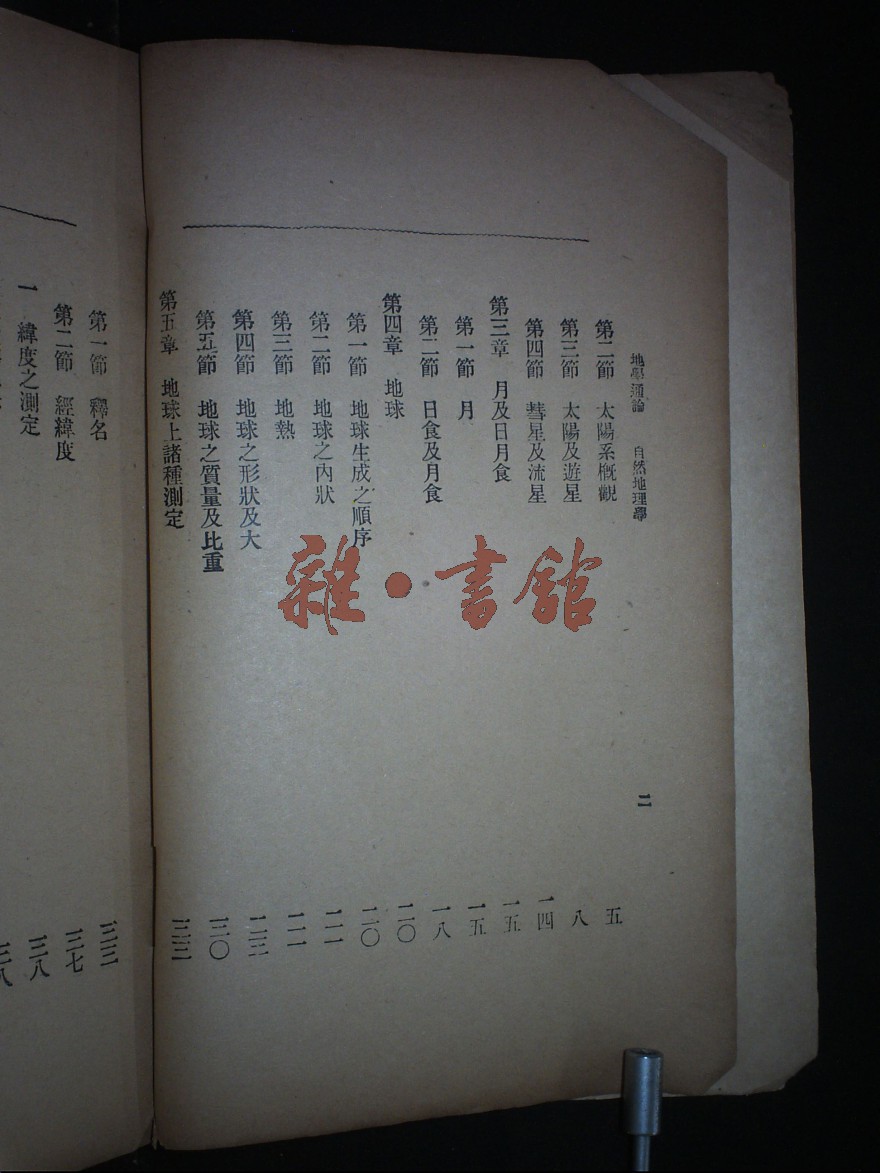 地學通論 自然地理學 二
第二節 太陽系槪觀 五
第三節 太陽及遊星 八
第四節 彗星及流星 一四
第三章 月及日月食 一五
第一節 月 一五
第二節 日食及月食 一八
第四章 地球 二〇
第一節 地球生成之順序 二〇
第二節 地球之內狀 二一
第三節 地熱 二一
第四節 地球之形狀及大 二三
第五節 地球之質量及比重 三〇
第五章 地球上諸種測定 三三
第一節 釋名 三三
第二節 經緯度 三七
一 緯度之測定 三八
三八
雜·書館